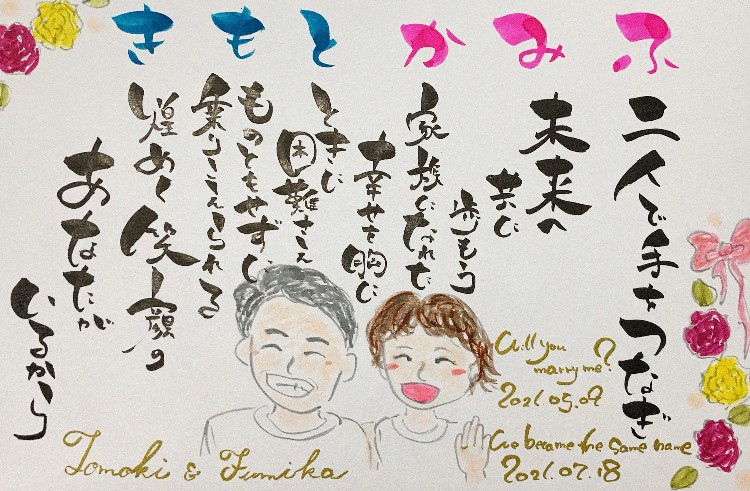 ふみか ともき
二人で手をつなぎ
未来へ
共に
歩もう
家族になれた
幸せを胸に
ときに
困難さえ
ものともせずに
乗りこえられる
煌めく笑顔の
あなたが
いるから
Will you
marry me?
2021.05.09
We became the same name
2021.07.18
Tomoki & Fumika